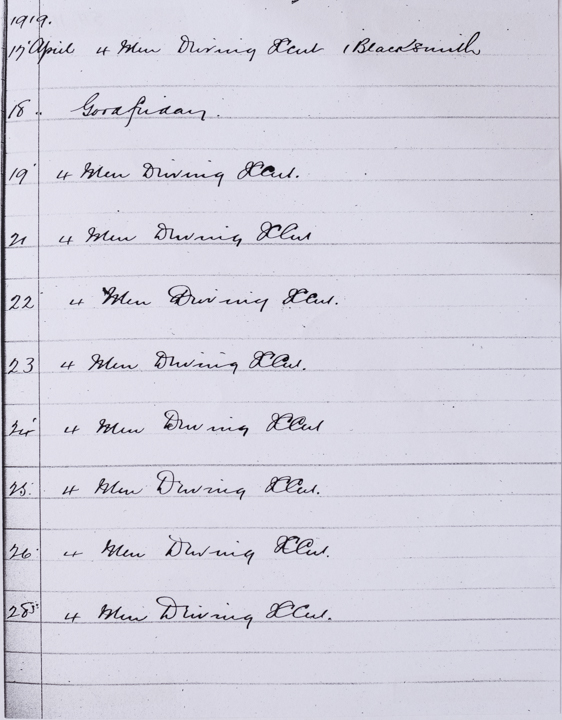 1919.
17 April 4 Men Driving XCut 1 Blacksmith
18 " Goodfriday.
19 4 Men Driving XCut.
21 4 Men Driving XCut
22 4 Men Driving XCut.
23 4 Men Driving XCut.
24 4 Men Driving XCut
25. 4 Men Driving XCut.
26 4 Men Driving XCut.
28 4 Men Driving XCut.